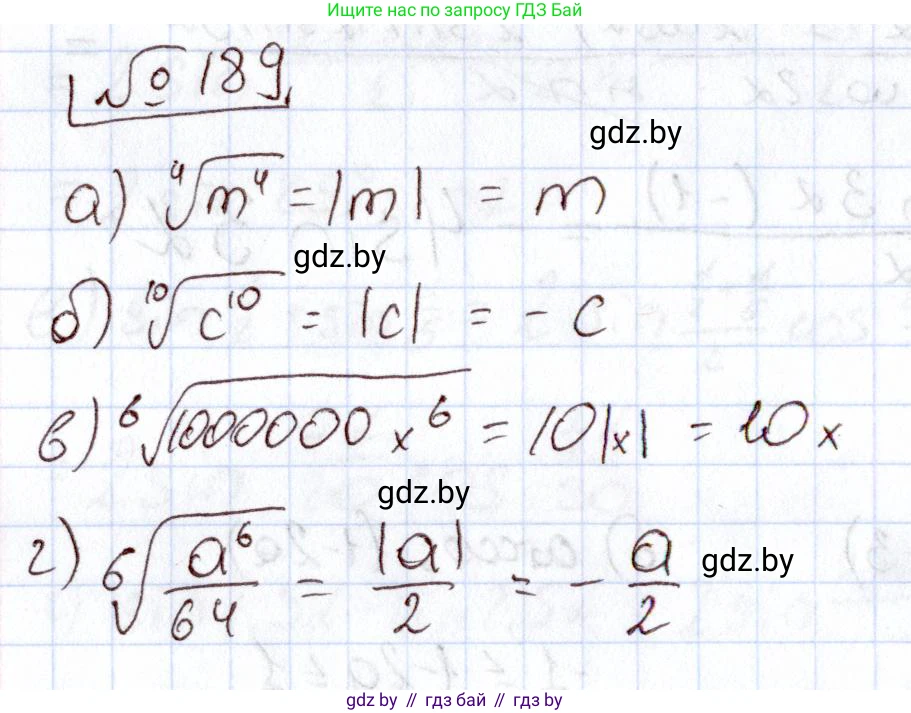 Ищите нас по запросу ГДЗ Бай
№ 189
gdz.by
а) ⁴√m⁴ = |m| = m
gdz.by
б) ¹⁰√c¹⁰ = |c| = - c
в) ⁶√1000000 x⁶ = 10|x| = 10 x
gdz.by
г) ⁶√a⁶/64 = |a|/2 = - a/2
gdz.by
gdz.by // гдз бай // gdz.by